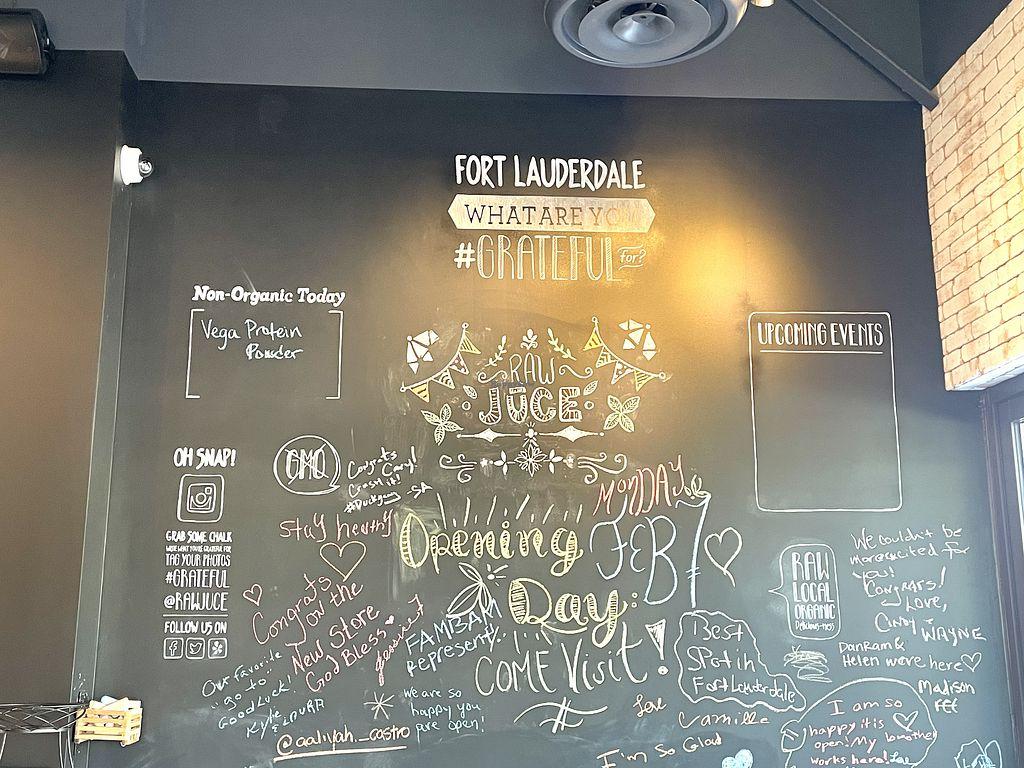 FORT LAUDERDALE
WHAT ARE YOU
#GRATEFUL for?
Non-Organic Today
Vega Protein
Powder
UPCOMING EVENTS
RAW
JŪCE
OH SNAP!
GMO
Congrats
#Duckgang -SA
stay healthy
MONDAY
Opening
FEB 1
Day:
COME Visit!
GRAB SOME CHALK
WRITE WHAT YOU'RE GRATEFUL FOR
TAG YOUR PHOTOS
#GRATEFUL
@RAWJUCE
FOLLOW US ON
Congrats
on the
New Store
God Bless
FAMBAM
represent!
Our favorite
"go to"
Good Luck!
Kyle
LAURA
we are so
happy you
are open!
@aaliyah._castro
RAW
LOCAL
ORGANIC
DELICIOUS-NESS
We couldn't be
more excited for
you!
CONGRATS!
Love,
Cindy + WAYNE
Best
SPot in
Fort Lauderdale
love
Camille
Dankam &
Helen were here
Madison
I am so
happy it is
open! My brother
works here!
I'm So Glad